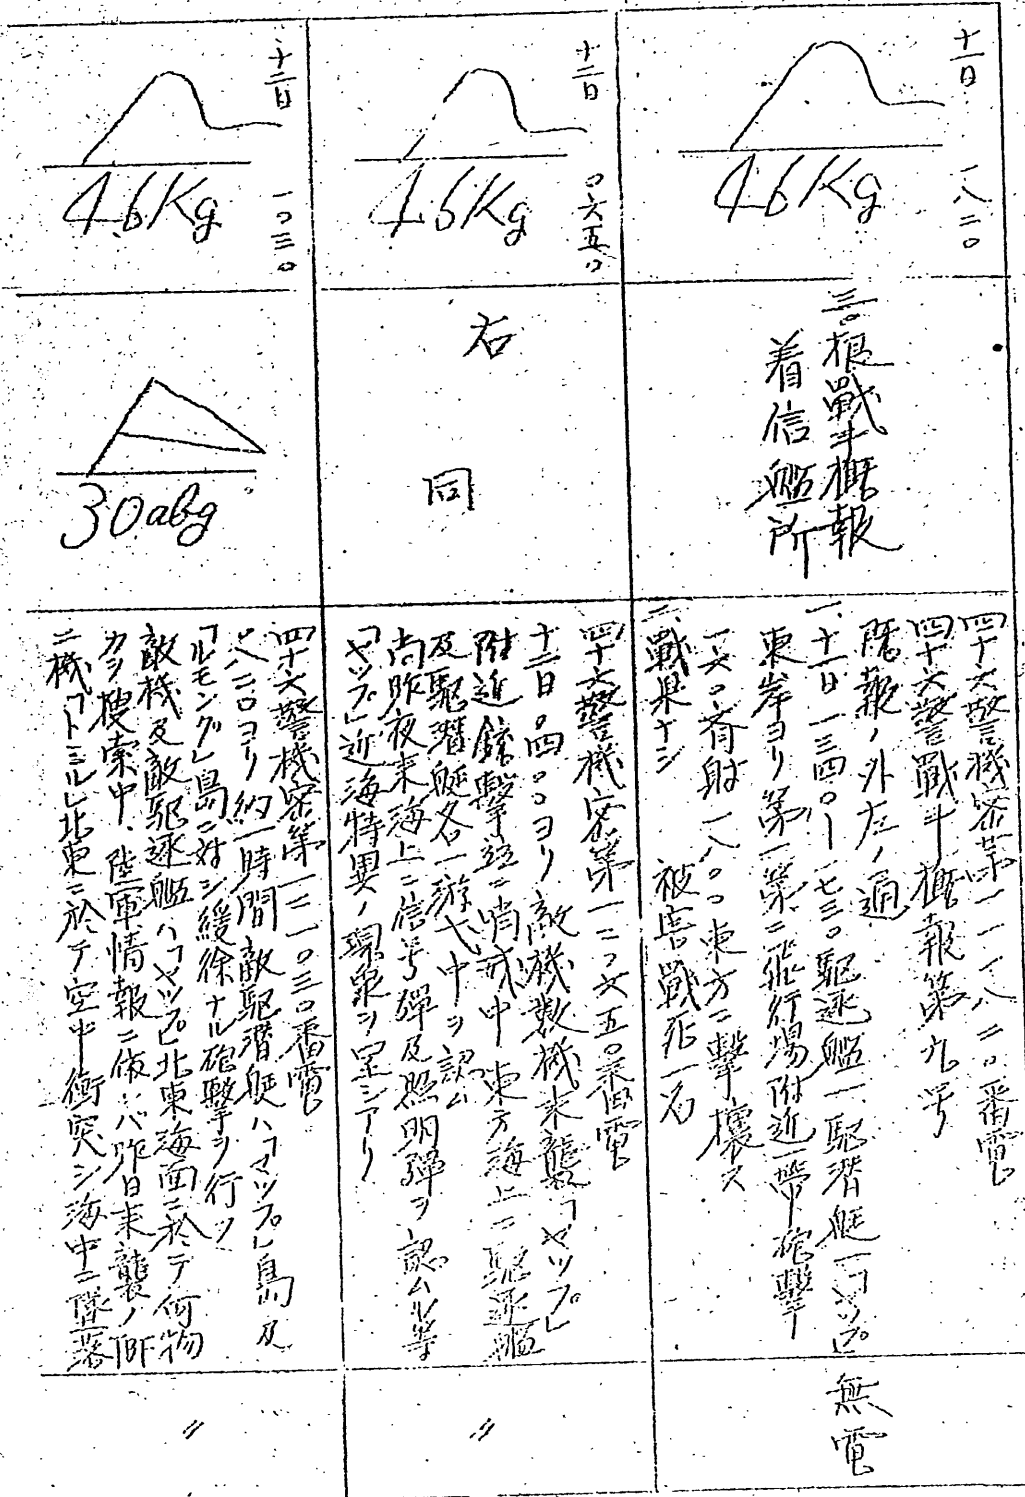 十一日
一八二〇
46Kg
三〇根戰斗概報
着信艦所
四十六警機密第一一一八二〇番電
四十六警戰斗概報第九号
既報ノ外左ノ通
一、十一日一三四〇ー一七三〇駆逐艦一駆潜艇一「ヤップ」
東岸ヨリ第一第二飛行場附近一帶砲擊
一六〇斉射一八〇〇東方ニ擊攘ス
二、戰果ナシ 被害戰死一名
無電
十二日
〇六五〇
46Kg
右
同
四十六警機密第一二〇六五〇番電
十二日〇四〇〇ヨリ敵機数機来襲「ヤップ」
附近銃擊並ニ哨戒中東方海上ニ駆逐艦
及駆潜艇各一游弋中ヲ認ム
尚昨夜来海上ニ信号弾及照明彈ヲ認ムル等
「ヤップ」近海特異ノ現象ヲ呈シアリ
〃
十二日
一〇三〇
46Kg
30abg
四十六警機密第一二一〇三〇番電
〇八二〇ヨリ約一時間敵駆潜艇ハ「マップ」島及
「ルモング」島ニ対シ緩徐ナル砲擊ヲ行フ
敵機及敵駆逐艦ハ「ヤップ」北東海面ニ於テ何物
カヲ搜索中、陸軍情報ニ依レバ昨日来襲ノTBF
二機「トミル」北東ニ於テ空中衝突シ海中ニ墜落
〃